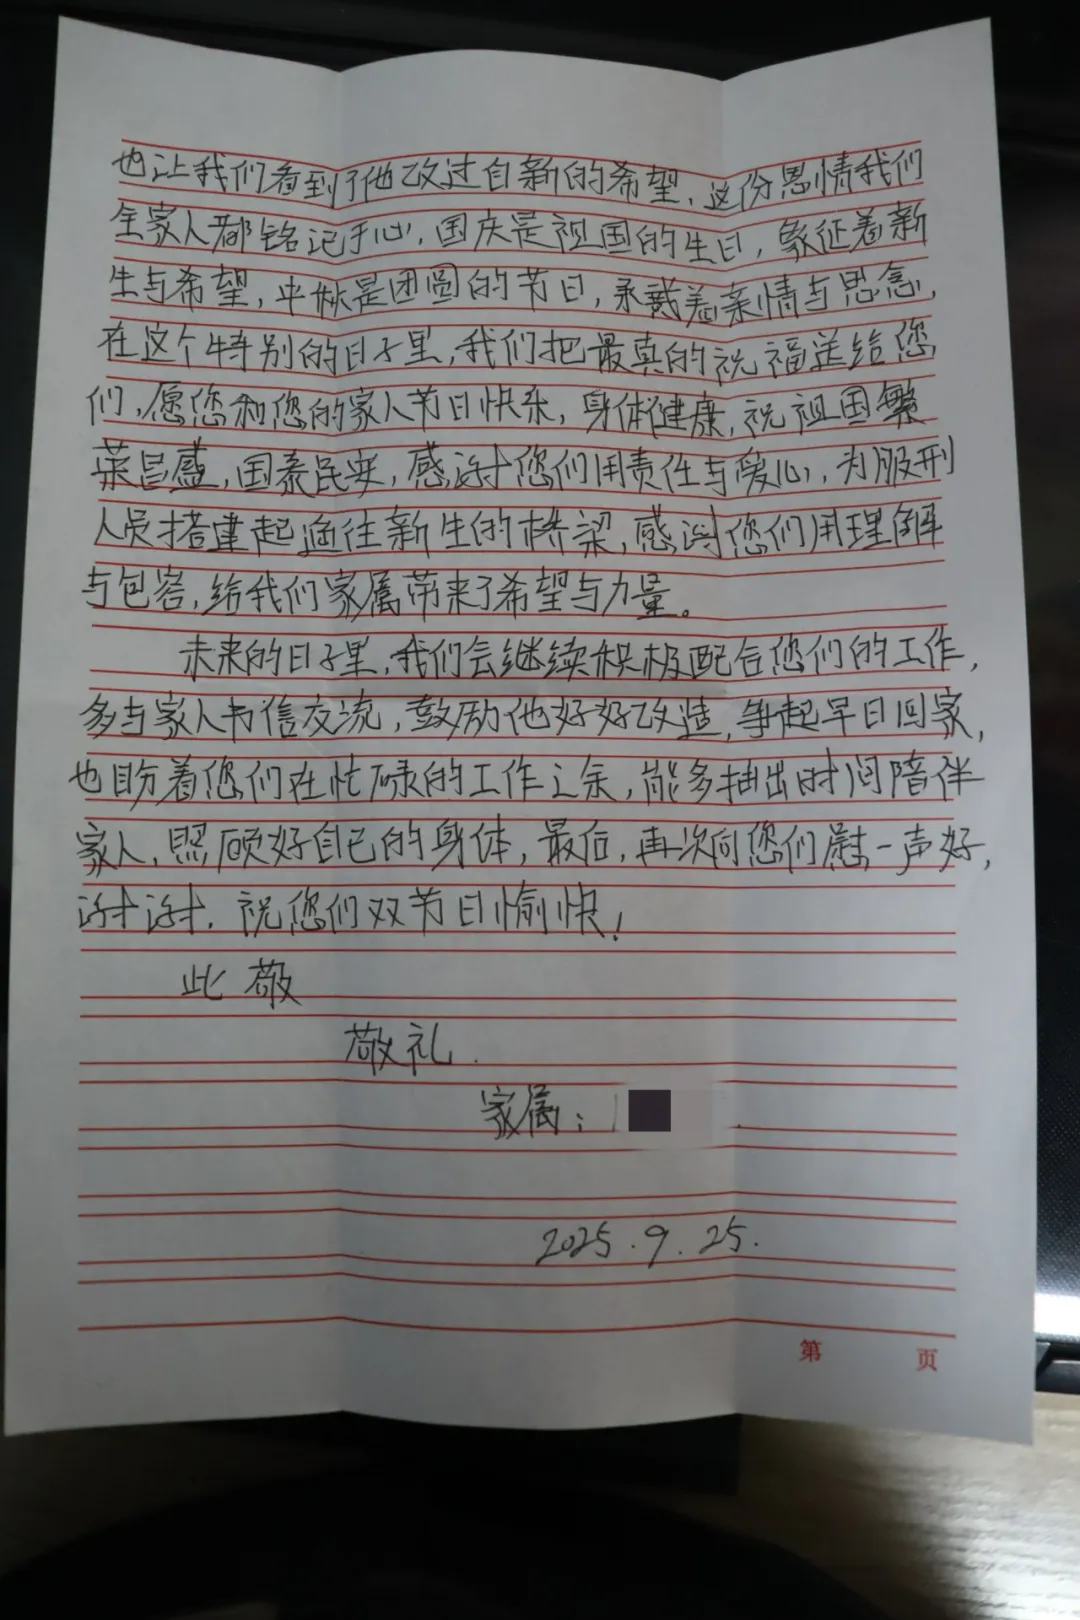 也让我们看到了他改过自新的希望，这份恩情我们
全家人都铭记于心，国庆是祖国的生日，象征着新
生与希望，中秋是团圆的节日，承载着亲情与思念，
在这个特别的日子里，我们把最真的祝福送给您
们，愿您和您的家人节日快乐，身体健康，祝祖国繁
荣昌盛，国泰民安，感谢您们用责任与爱心，为服刑
人员搭建起通往新生的桥梁，感谢您们用理解
与包容，给我们家属带来了希望与力量。
未来的日子里，我们会继续积极配合您们的工作，
多与家人书信交流，鼓励他好好改造，争起早日回家，
也盼着您们在忙碌的工作之余，能多抽出时间陪伴
家人，照顾好自己的身体，最后，再次向您们慰一声好，
谢谢．祝您们双节日愉快！
此敬
敬礼．
家属：
2025.9.25.
第 页